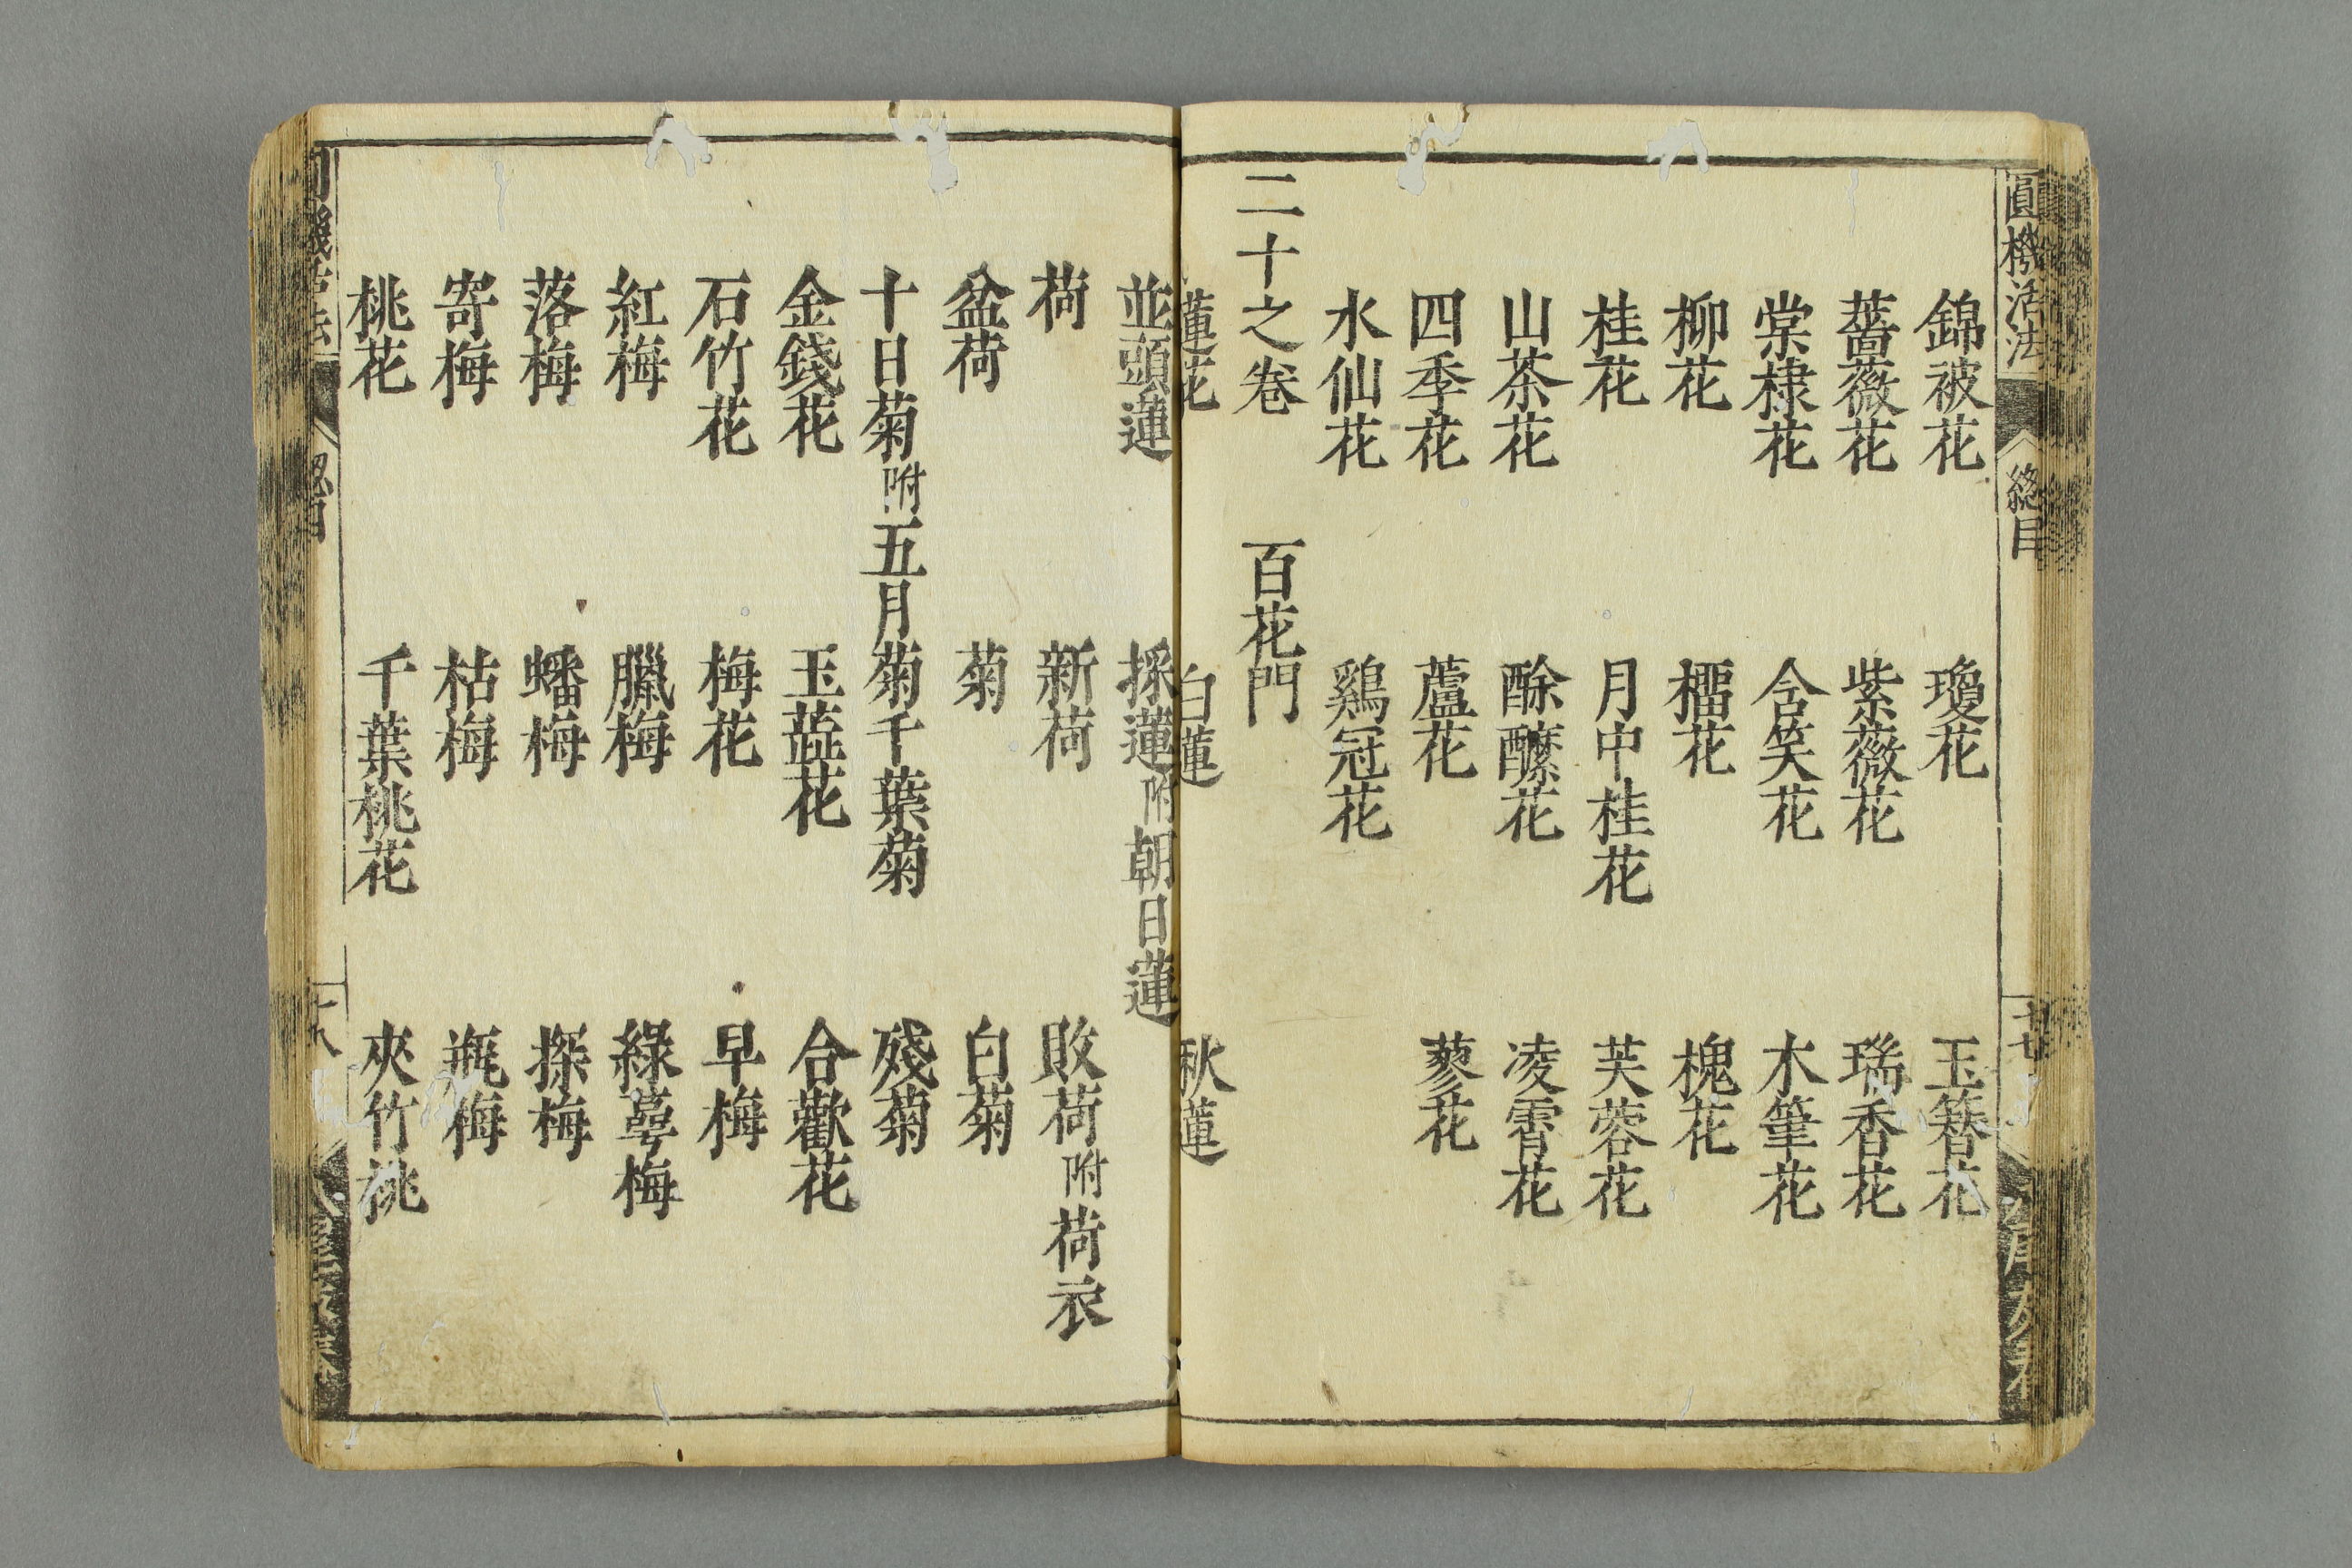 圓機活法
總目
錦被花 瓊花 玉簪花
薔薇花 紫薇花 瑞香花
棠棣花 含笑花 木筆花
柳花 榴花 槐花
桂花 月中桂花 芙蓉花
山茶花 酴醾花 凌霄花
四季花 蘆花 蓼花
水仙花 鷄冠花
二十之卷 百花門
蓮花 白蓮 秋蓮
並頭蓮 採蓮附朝日蓮
荷 新荷 敗荷附荷衣
盆荷 菊 白菊
十日菊附五月菊千葉菊 殘菊
金錢花 玉蕋花 合歡花
石竹花 梅花 早梅
紅梅 臘梅 綠萼梅
落梅 蟠梅 探梅
寄梅 枯梅 瓶梅
桃花 千葉桃花 夾竹桃